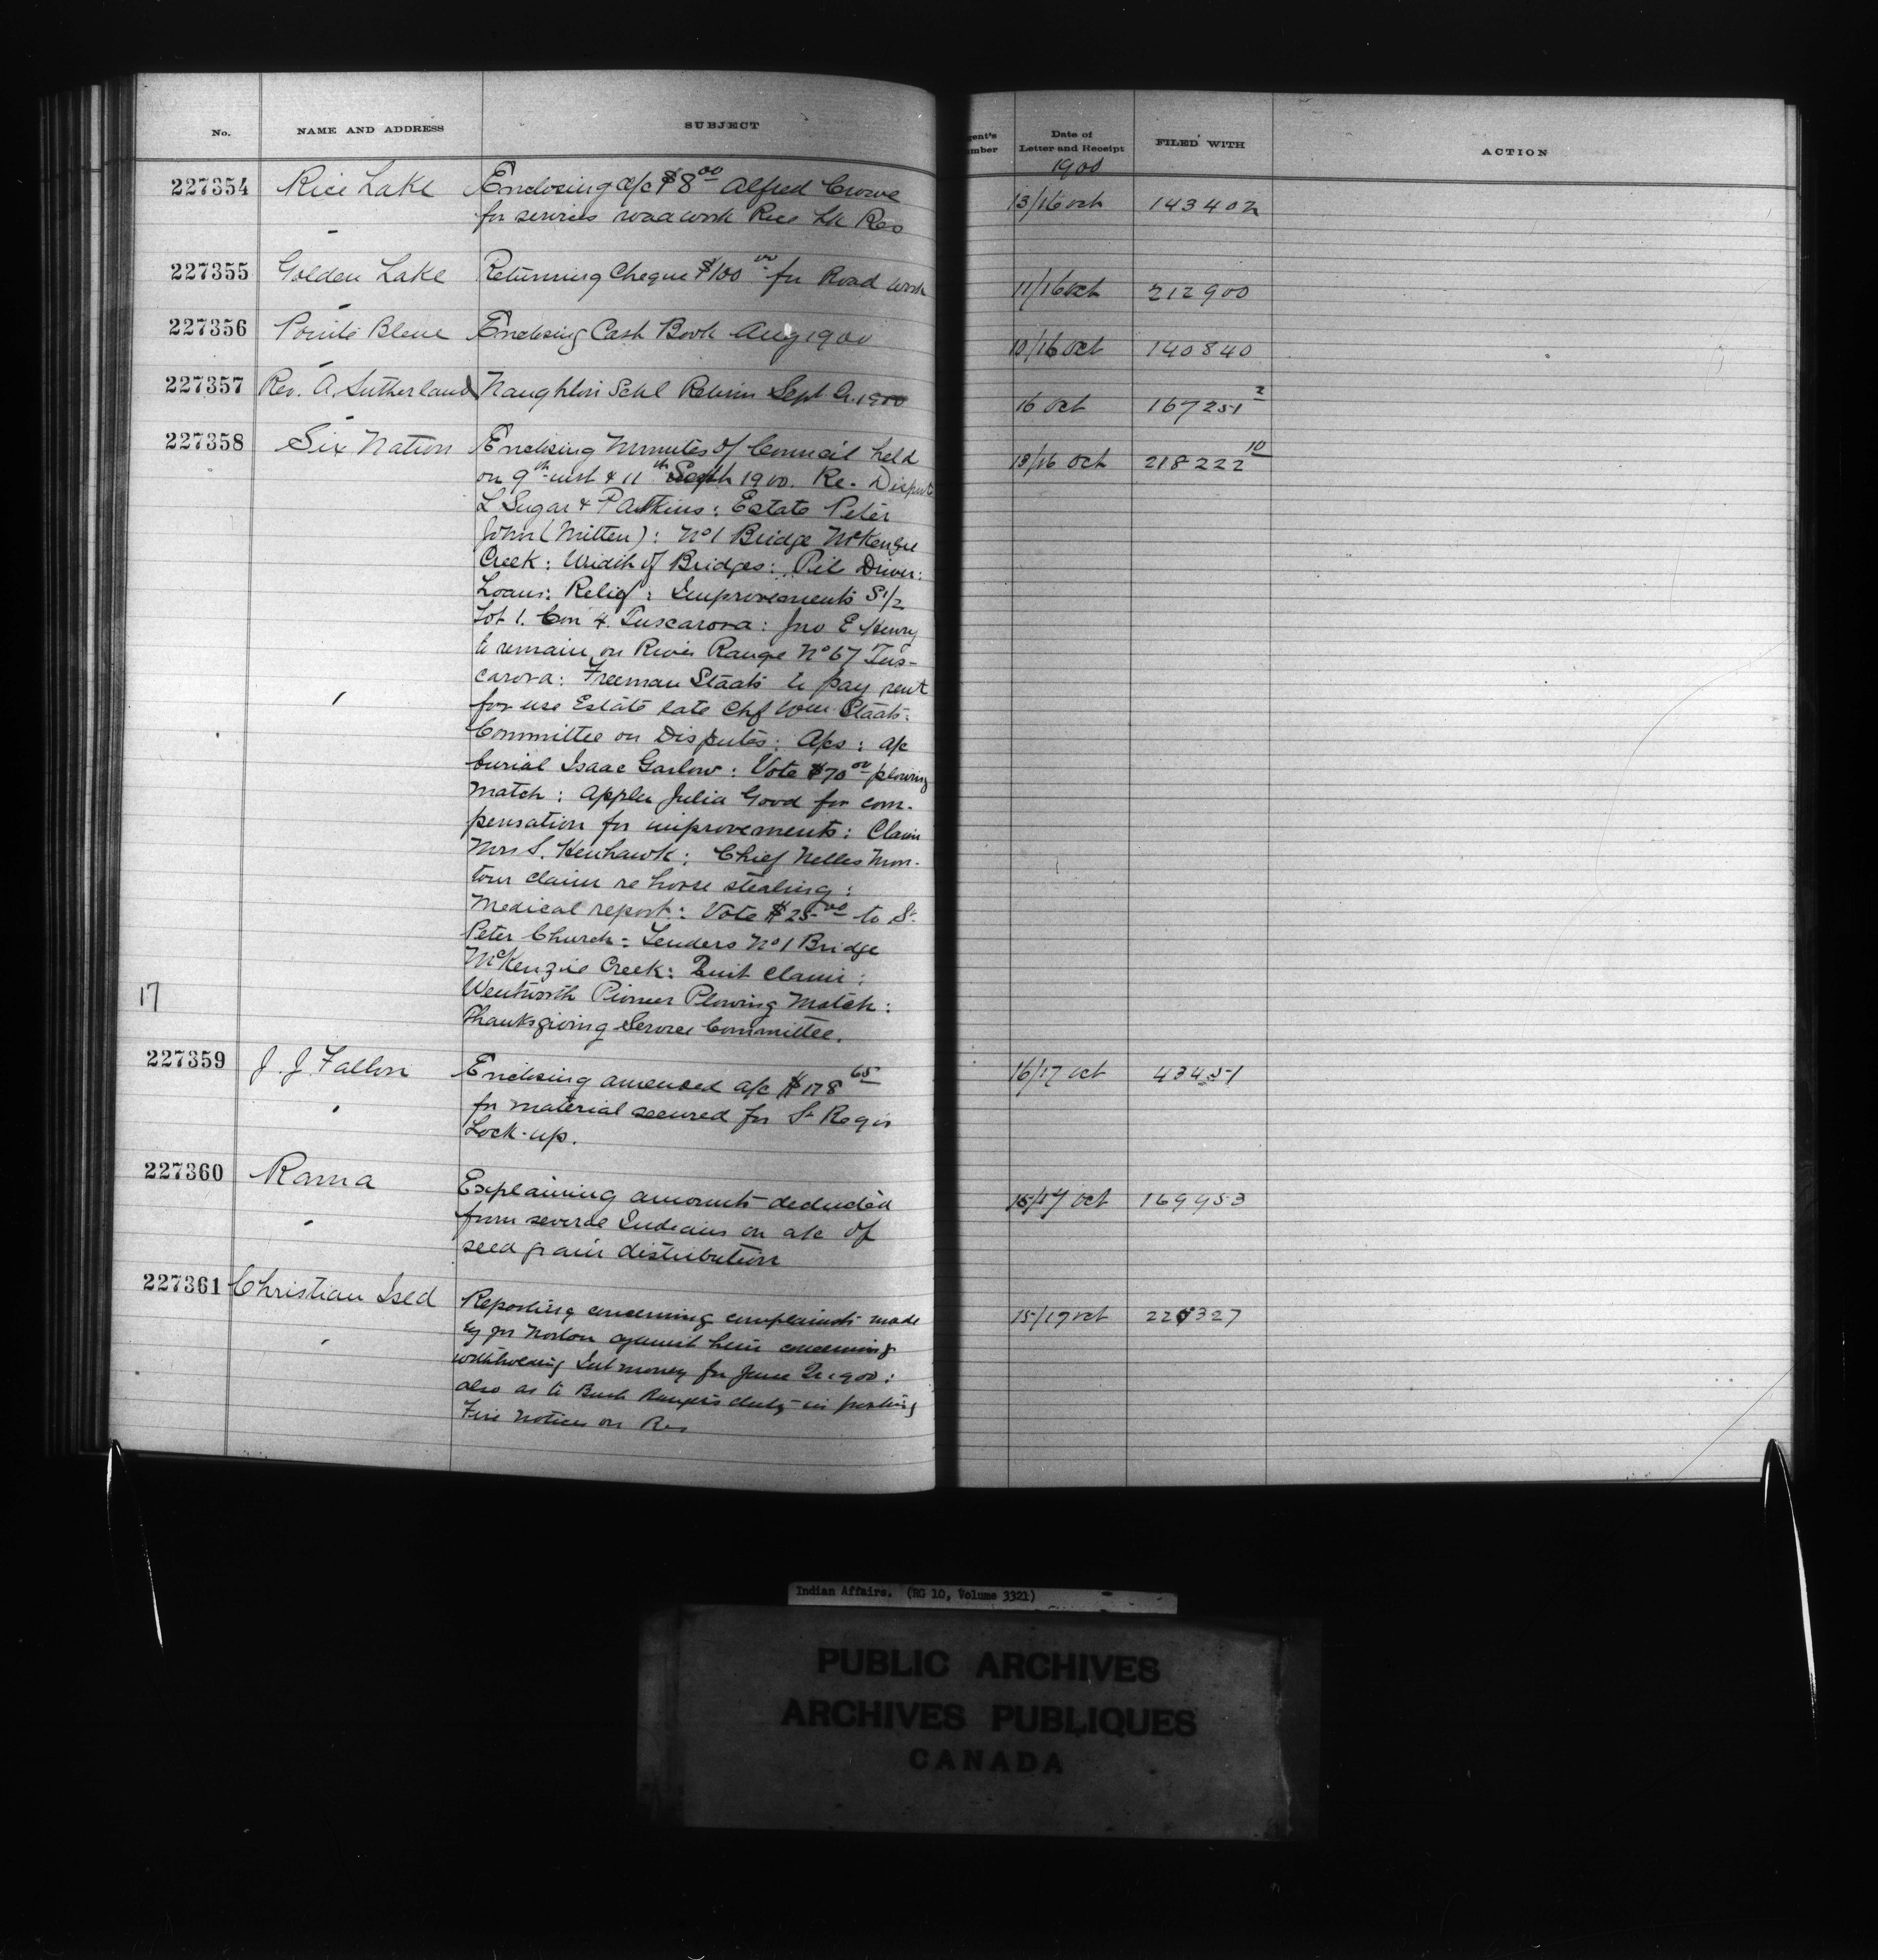 No. NAME AND ADDRESS SUBJECT
gent's umber Date of Letter and Receipt FILED WITH ACTION
1900
227354 Rice Lake Enclosing a/c $8 00 Alfred Crowe 13/16 Oct 143402
for services roadwork Rice Lk Res
227355 Golden Lake Returning Cheque $100 00 for Road work 11/16 Oct 212900
227356 Pointe Bleue Enclosing Cash Book Aug 1900 10/16 Oct 140840
227357 Rev. A. Sutherland Naughton Schl Return Sept Q. 1900 16 Oct 167251 2
227358 Six Nation Enclosing Minutes of Council held 13/16 Oct 218222 10
on 9th inst & 11th Sept 1900. Re. Dispute
L Sugar & P Atkins: Estate Peter
John (Mitten): No 1 Bridge McKenzie
Creek: Width of Bridges: Pile Driver:
Loans: Relief: Improvements S 1/2
Lot 1. Con 4. Tuscarora: Jno E Henry
to remain on River Range No 67 Tus-
carora: Freeman Staats to pay rent
for use Estate late Chf Wm Staats:
Committee on Disputes: Aps: a/c
burial Isaac Garlow: Vote $70 00 plowing
match: Appln Julia Good for com-
pensation for improvements: Claim
Mrs S. Henhawk: Chief Nelles Mon-
tour claim re horse stealing:
Medical report: Vote $25 00 to St
Peter Church: Tenders No 1 Bridge
McKenzie Creek: Quit Claim:
Wentworth Pioneer Plowing Match:
Thanksgiving Service Committee.
17
227359 J. J. Fallon Enclosing amended a/c $178 65 16/17 Oct 43451
for material secured for St Regis
Lock-up.
227360 Rama Explaining amounts deducted 15/17 Oct 169953
from several Indians on a/c of
seed grain distribution
227361 Christian Isld Reporting concerning complaints made 15/17 Oct
by Jno Norton against him concerning
withholding Int money for June Qr 1900:
also as to Bush Rangers duty in posting
Fire notices on Res
Indian Affairs. (RG 10, Volume 3321)
PUBLIC ARCHIVES
ARCHIVES PUBLIQUES
CANADA